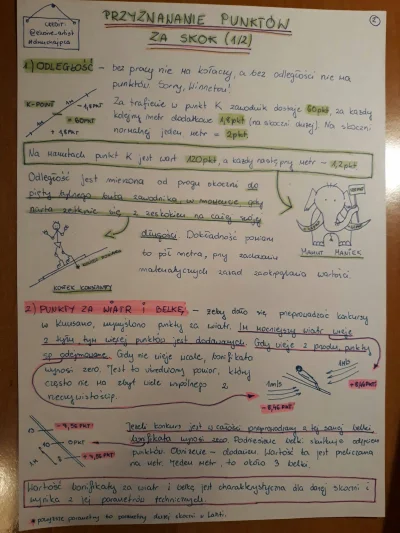 CREDIT:
①
PRZYZNAWANIE PUNKTÓW
ZA SKOK (1/2)
1) ODLEGŁOŚĆ – bez pracy nie ma kołaczy, a bez odległości nie ma
punktów. Sorry, Winnetou!
K-POINT
1m
-1,8PKT
= 60PKT
1m
+1,8PKT
Za trafienie w punkt K zawodnik dostaje 60pkt, za każdy
kolejny metr dodatkowo 1,8pkt (na skoczni dużej). Na skoczni
normalnej jeden metr = 2pkt.
Na mamutach punkt K jest wart 120pkt, a każdy następny metr = 1,2pkt
Odległość jest mierzona od progu skoczni do
pięty tylnego buta zawodnika w momencie, gdy
narta zetknie się z zeskokiem na całej swojej
długości. Dokładność pomiaru
to pół metra, przy zachowaniu
matematycznych zasad zaokrąglania wartości.
MAMUT MANIEK
2) PUNKTY ZA WIATR I BELKĘ – żeby dało się przeprowadzać konkursy
w Kuusamo, wymyślono punkty za wiatr. Im mocniejszy wiatr wieje
z tyłu, tym więcej punktów jest dodawanych. Gdy wieje z przodu, punkty
są odejmowane. Gdy nie wieje wcale, bonifikata
wynosi zero. Jest to uśredniony pomiar, który
często nie ma zbyt wiele wspólnego z
rzeczywistością.
1m/s
1m/s
Jeżeli konkurs jest w całości przeprowadzany z tej samej belki,
bonifikata wynosi zero. Podniesienie belki skutkuje odjęciem
punktów. Obniżenie – dodaniem. Wartość ta jest przeliczana
na metr. Jeden metr, to około 3 belki.
0PKT
Wartość bonifikaty za wiatr i belkę jest charakterystyczna dla danej skoczni i
wynika z jej parametrów technicznych.
* powyższe parametry to parametry dużej skoczni w Lahti.